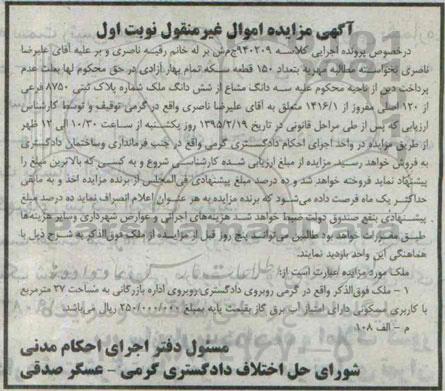 آگهی مزایده اموال غیرمنقول نوبت اول
درخصوص پرونده اجرایی کلاسه ۹۴۰۲۰۹ج‌م‌ش بر له خانم رقیسه ناصری و بر علیه آقای علیرضا
ناصری بخواسته مطالبه مهریه بتعداد ۱۵۰ قطعه سکه تمام بهار آزادی در حق محکوم لها بعلت عدم
پرداخت دین از ناحیه محکوم علیه سه دانگ مشاع از شش دانگ ملک شماره پلاک ثبتی ۸۷۵۰ فرعی
از ۱۲۰ اصلی مفروز از ۱۴۱۶/۱ متعلق به آقای علیرضا ناصری واقع در گرمی توقیف و توسط کارشناس
ارزیابی که پس از طی مراحل قانونی در تاریخ ۱۳۹۵/۲/۱۹ روز یکشنبه از ساعت ۱۰/۳۰ الی ۱۲ ظهر
از طریق مزایده در واحد اجرای احکام دادگستری گرمی واقع در جنب فرمانداری وساختمان دادگستری
به فروش خواهد رسید مزایده از مبلغ ارزیابی شده کارشناسی شروع و به کسی که بالاترین مبلغ را
پیشنهاد نماید فروخته خواهد شد و ده درصد مبلغ پیشنهادی فی‌المجلس از برنده مزایده اخذ و به مابقی
حداکثر یک ماه فرصت داده می‌شود که برنده مزایده به هر عنوان اعلام انصراف نماید ده درصد مبلغ
پیشنهادی بنفع صندوق دولت ضبط خواهد شد هزینه‌های اجرائی و عوارض شهرداری وسایر هزینه‌ها
طبق مقررات خواهد بود طالبین می‌توانند پنج روز قبل از مزایده از ملک فوق‌الذکر به شرح ذیل با
هماهنگی این واحد بازدید نمایند.
ملک مورد مزایده عبارت است از:
۱ – ملک فوق‌الذکر واقع در گرمی روبروی دادگستری روبروی اداره بازرگانی به مساحت ۲۷ مترمربع
با کاربری مسکونی دارای امتیاز آب برق گاز بقیمت پایه بمبلغ ۲۵۰/۰۰۰/۰۰۰ ریال می‌باشد.
م – الف ۱۰۸
مسئول دفتر اجرای احکام مدنی
شورای حل اختلاف دادگستری گرمی – عسگر صدقی